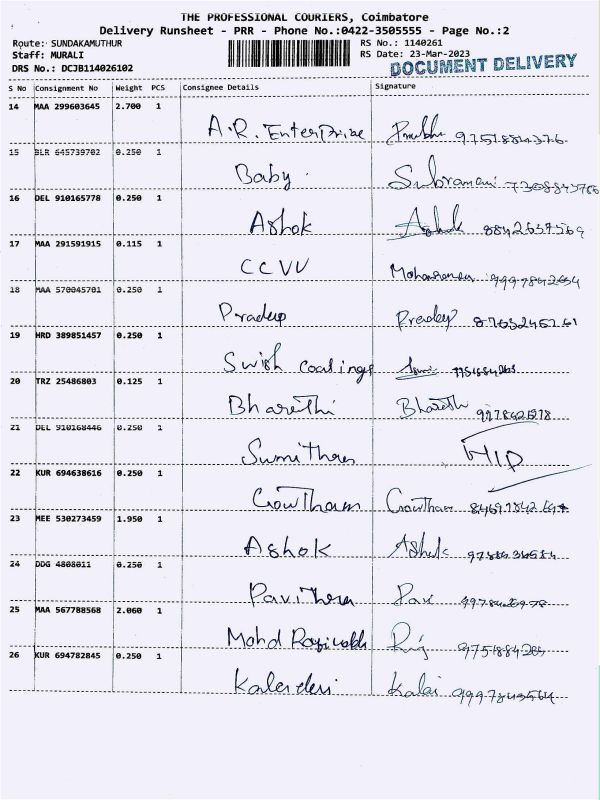 THE PROFESSIONAL COURIERS, Coimbatore
Delivery Runsheet - PRR - Phone No.:0422-3505555 - Page No.:2
Route: SUNDAKAMUTHUR RS No.: 1140261
Staff: MURALI RS Date: 23-Mar-2023
DRS No.: DCJB114026102 DOCUMENT DELIVERY
S No Consignment No Weight PCS Consignee Details Signature
14 MAA 299603645 2.700 1
A.R. Enterprise Prabhu 9751884376
15 BLR 645739702 0.250 1
Baby Subramani
16 DEL 910165778 0.250 1
Ashok Ashok 8842637569
17 MAA 291591915 0.115 1
CCVV
18 MAA 570045701 0.250 1
Pradeep Pradeep
19 HRD 389851457 0.250 1
Swish Coatings
20 TRZ 25486803 0.125 1
Bharathi Bharath
21 DEL 910168446 0.250 1
Sumithra
22 KUR 694638616 0.250 1
Gowtham Gowtham
23 MEE 530273459 1.950 1
Ashok Ashok
24 DDG 4808011 0.250 1
Pavithra Pavi
25 MAA 567788568 2.060 1
Mohd
26 KUR 694782845 0.250 1
Kalaidevi Kalai